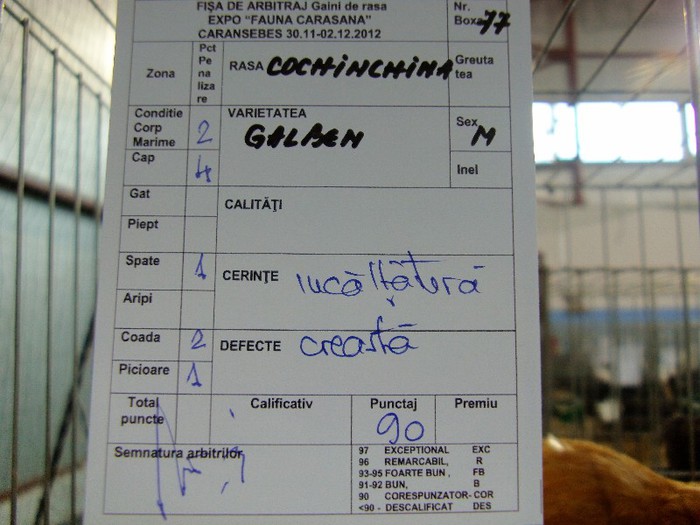 FIȘA DE ARBITRAJ Gaini de rasa
EXPO "FAUNA CARASANA"
CARANSEBES 30.11-02.12.2012
Nr.
Boxa 77
Zona
Pct
Pe
na
liza
re
RASA COCHINCHINA
Greuta
tea
Conditie
Corp
Marime 2
VARIETATEA
GALBEN
Sex
M
Cap 4
Inel
Gat
CALITĂŢI
Piept
Spate 1
CERINŢE încălţătură
Aripi
Coada 2
DEFECTE creastă
Picioare 1
Total
puncte
Calificativ
Punctaj
90
Premiu
Semnatura arbitrilor
97 EXCEPTIONAL EXC
96 REMARCABIL, R
93-95 FOARTE BUN , FB
91-92 BUN, B
90 CORESPUNZATOR- COR
<90 - DESCALIFICAT DES